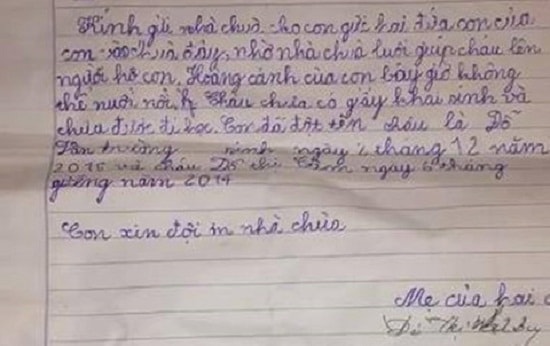 Kính gửi nhà chùa cho con gửi hai đứa con của
con vào chùa đây, nhờ nhà chùa nuôi giúp cháu lên
người hộ con. Hoàng cảnh của con bây giờ không
thể nuôi nổi. Cháu chưa có giấy khai sinh và
chưa được đi học. Con đã đặt tên cháu là Đỗ
sinh ngày tháng 12 năm
2015 và cháu Đỗ thị ngày 6 tháng
giêng năm 2014
Con xin đội ơn nhà chùa
Mẹ của hai
Thị